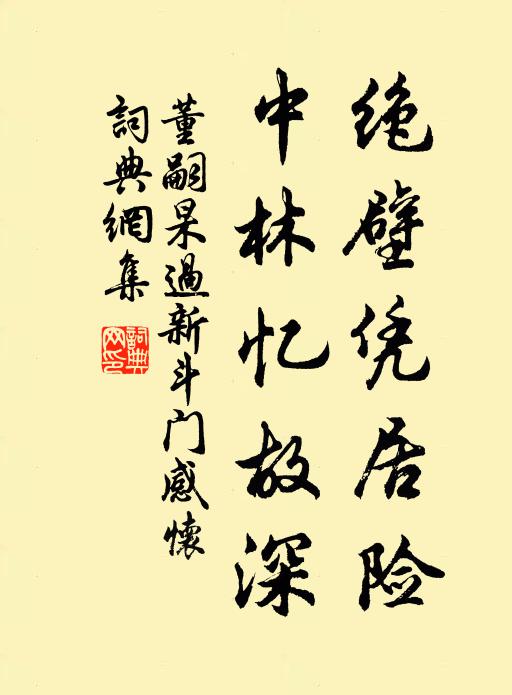 绝壁凭居险
中林忆故深
董嗣杲過新斗门感懷
詞典網集
詞典
网印